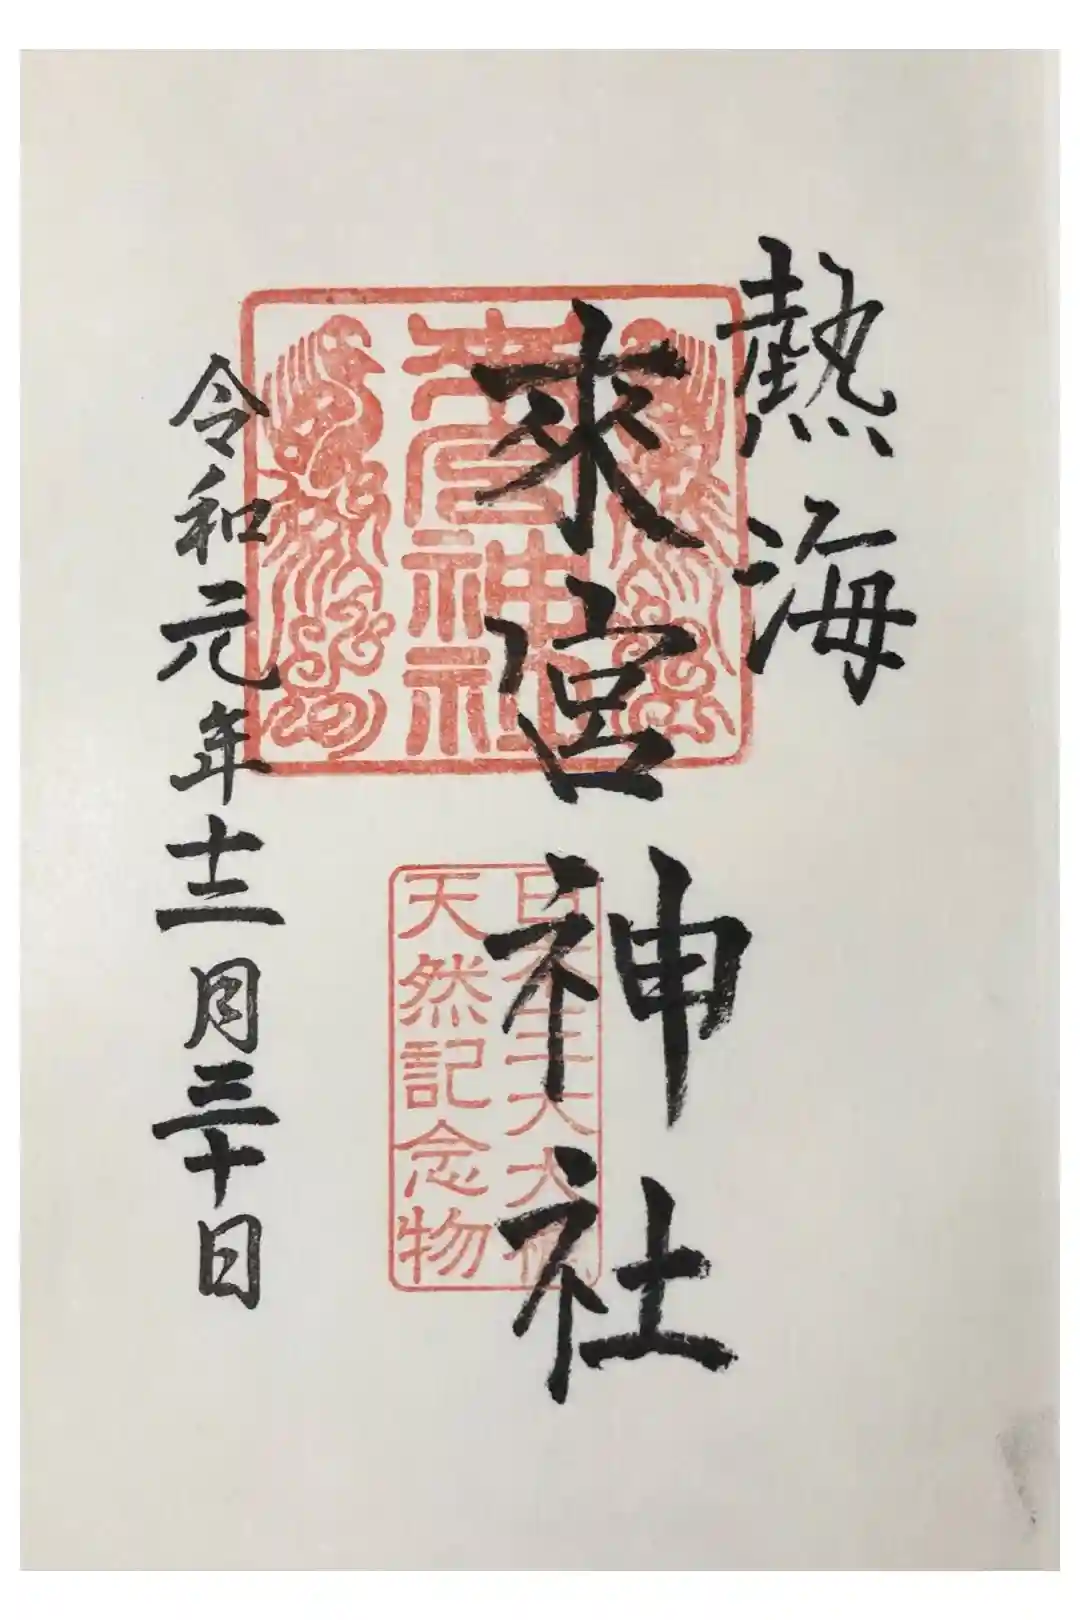 熱海
來宮神社
來宮神社
日本三大大楠
天然記念物
令和元年十二月三十日